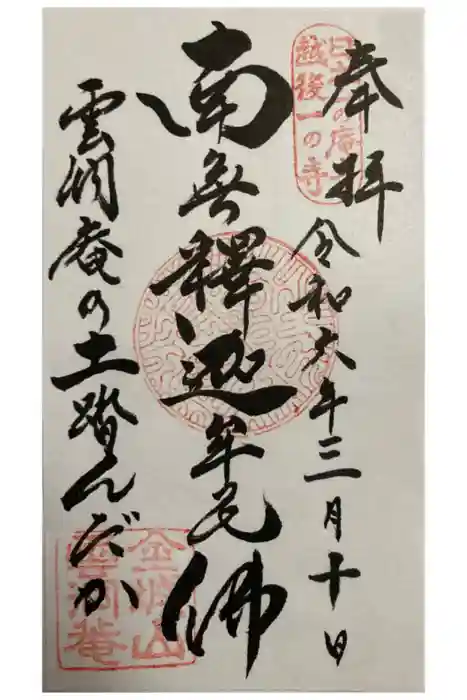 奉拝
令和六年三月十日
日本一の庵
越後一の寺
南無釋迦牟尼佛
雲洞庵の土踏んだか
金城山
雲洞菴